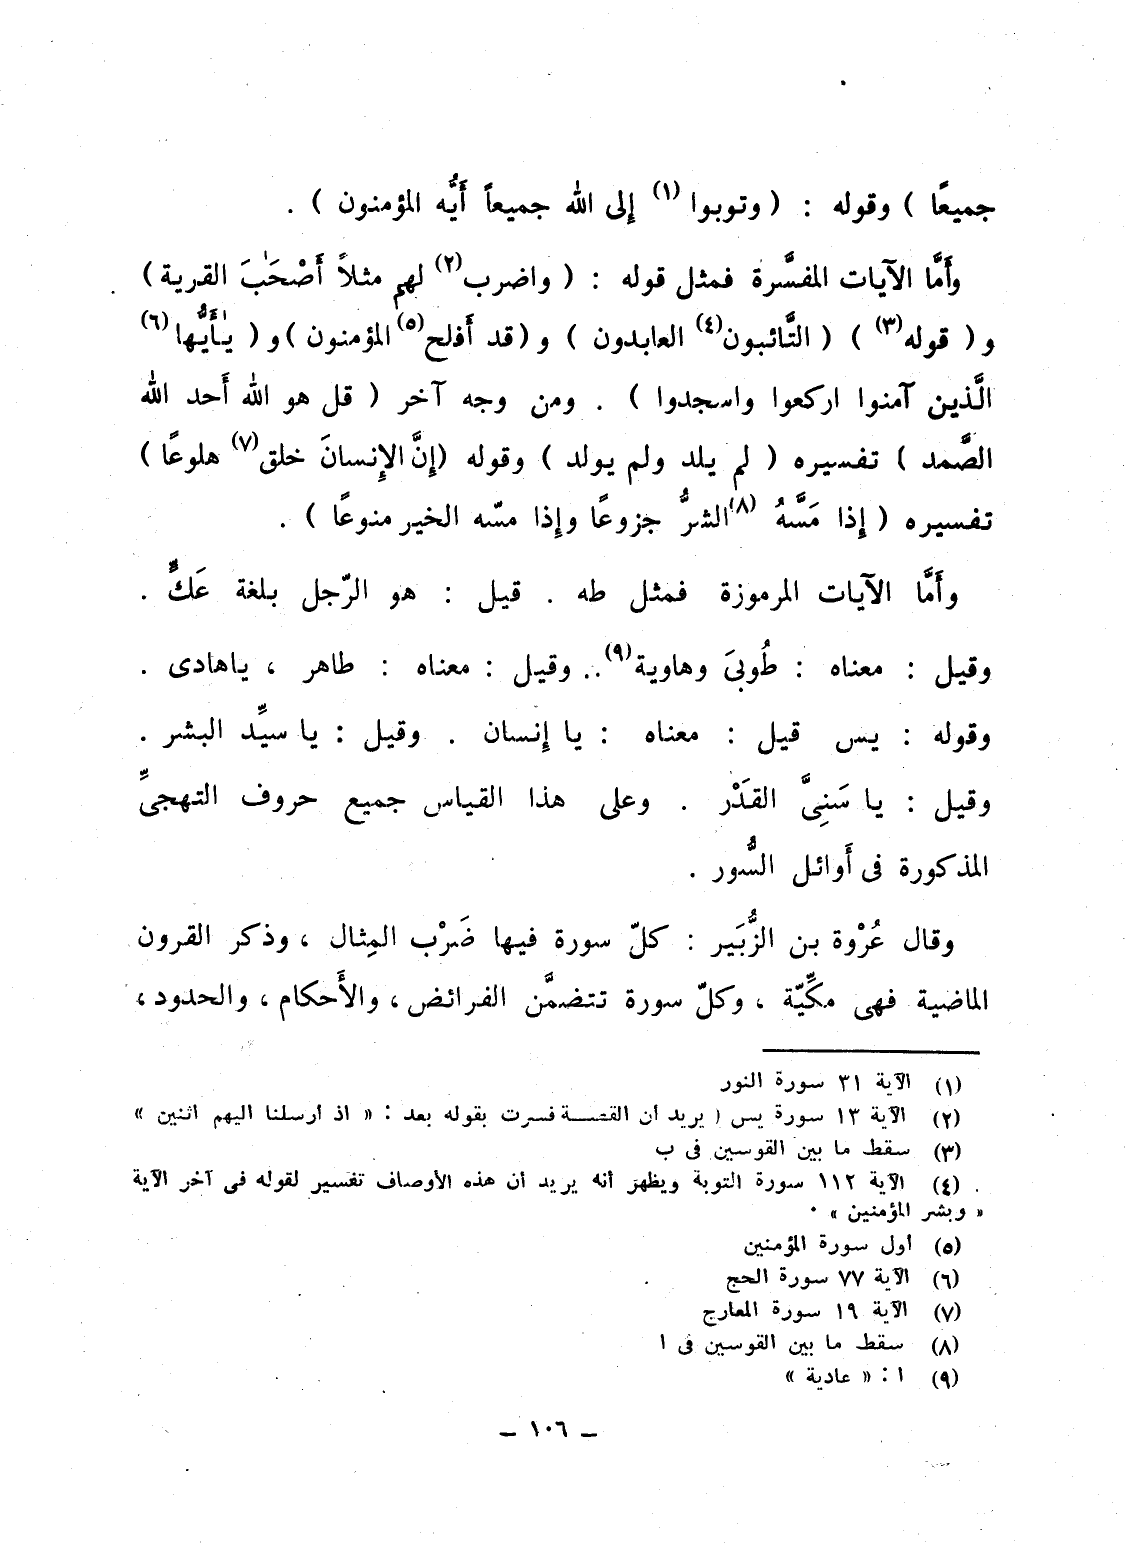 جميعًا ) وقوله : ( وتوبوا (١) إلى الله جميعاً أَيُّه المؤمنون ) .
وأَمَّا الآيات المفسَّرة فمثل قوله : ( واضرب(٢) لهم مثلاً أَصْحَٰبَ القرية )
و( قوله(٣) ) ( التَّائبون(٤) العابدون ) و(قد أَفلح(٥) المؤمنون ) و( يٰأَيُّها(٦)
الَّذين آمنوا اركعوا واسجدوا ) . ومن وجه آخر ( قل هو الله أَحد الله
الصَّمد ) تفسيره ( لم يلد ولم يولد ) وقوله (إِنَّ الإِنسانَ خلق(٧) هلوعًا )
تفسيره ( إِذا مَسَّهُ (٨)الشرُّ جزوعًا وإِذا مسّه الخير منوعًا ) .
وأَمَّا الآيات المرموزة فمثل طه . قيل : هو الرّجل بلغة عَكٍّ .
وقيل : معناه : طُوبىَ وهاوية(٩).. وقيل : معناه : طاهر ، ياهادى .
وقوله : يس قيل : معناه : يا إِنسان . وقيل : يا سيِّد البشر .
وقيل : يا سَنِىَّ القَدْر . وعلى هذا القياس جميع حروف التهجىِّ
المذكورة فى أَوائل السُّور .
وقال عُرْوة بن الزُّبَير : كلّ سورة فيها ضَرْب المِثال ، وذكر القرون
الماضية فهى مكِّيّة ، وكلّ سورة تتضمَّن الفرائض ، والأَحكام ، والحدود ،
(١) الآية ٣١ سورة النور
(٢) الآية ١٣ سورة يس ( يريد أن القصة فسرت بقوله بعد : « اذ أرسلنا اليهم اثنين »
(٣) سقط ما بين القوسين فى ب
(٤) الآية ١١٢ سورة التوبة ويظهر أنه يريد أن هذه الأوصاف تفسير لقوله فى آخر الآية
« وبشر المؤمنين » ٠
(٥) أول سورة المؤمنين
(٦) الآية ٧٧ سورة الحج
(٧) الآية ١٩ سورة المعارج
(٨) سقط ما بين القوسين فى ا
(٩) ا : « عادية »
— ١٠٦ —